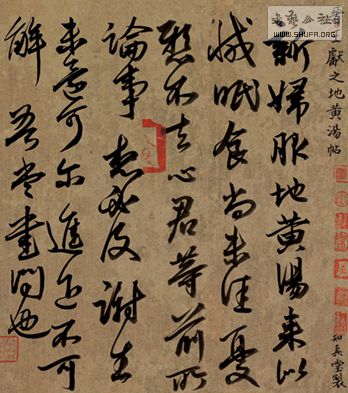 獻之地黄湯帖
新婦服地黄湯来似
減眠食尚未佳憂
懸不去心君等前所
論事想必及謝生
未還可尔進退不可
解吾當書問也
WWW.SHUFA.ORG